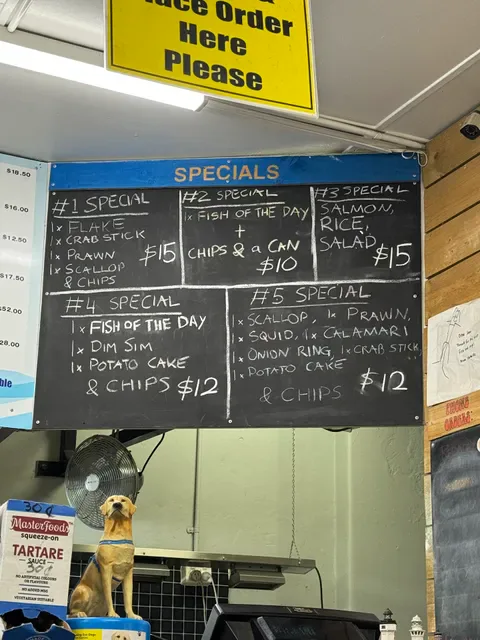 ace Order
Here
Please
SPECIALS
$18.50
$16.00
$12.50
$17.50
$52.00
28.00
ble
#1 SPECIAL
1x FLAKE
1x CRAB STICK
1x PRAWN
1x SCALLOP
& CHIPS
$15
#2 SPECIAL
1x FISH OF THE DAY
+
CHIPS & a CAN
$10
#3 SPECIAL
SALMON,
RICE,
SALAD
$15
#4 SPECIAL
1x FISH OF THE DAY
1x DIM SIM
1x POTATO CAKE
& CHIPS $12
#5 SPECIAL
1x SCALLOP, 1x PRAWN,
1x SQUID, 1x CALAMARI
1x ONION RING, 1x CRAB STICK
1x POTATO CAKE
& CHIPS $12
30¢
MasterFoods
squeeze-on
TARTARE
SAUCE
30¢
NO ARTIFICIAL COLOURS
OR FLAVOURS
NO ADDED MSG